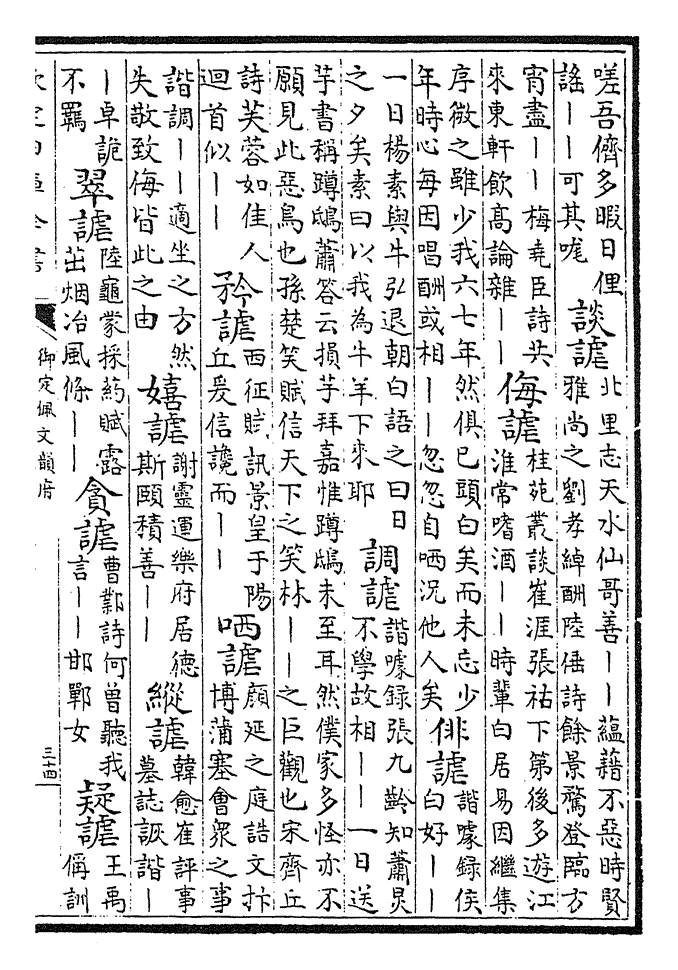 嗟吾儕多暇日俚
謠丨丨可其嘅
談謔
北里志天水仙哥善丨丨蘊藉不惡時賢
雅尚之劉孝綽酬陸倕詩餘景騖登臨方
宵盡丨丨梅堯臣詩共
來東軒飲高論雜丨丨
侮謔
桂苑叢談崔涯張祜下第後多遊江
淮常嗜酒丨丨時輩白居易因繼集
序微之雖少我六七年然俱已頭白矣而未忘少
年時心每因唱酬或相丨丨忽忽自哂况他人矣
俳謔
諧噱錄侯
白好丨丨
一日楊素與牛弘退朝白語之曰日
之夕矣素曰以我為牛羊下來耶
調謔
諧噱錄張九齡知蕭炅
不學故相丨丨一日送
芋書稱蹲鴟蕭答云損芋拜嘉惟蹲鴟未至耳然僕家多怪亦不
願見此惡鳥也孫楚笑賦信天下之笑林丨丨之巨觀也宋齊丘
詩芙蓉如佳人
迴首似丨丨
矜謔
西征賦訊景皇于陽
丘爰信讒而丨丨
哂謔
顔延之庭誥文抃
博蒲塞會衆之事
諧調丨丨適坐之方然
失敬致侮皆此之由
嬉謔
謝靈運樂府居德
斯頤積善丨丨
縱謔
韓愈崔評事
墓誌詼諧丨
丨卓詭
不羈
翠謔
陸龜蒙採藥賦露
茁烟冶風條丨丨
貪謔
曹鄴詩何曾聽我
言丨丨邯鄲女
疑謔
王禹
偁訓
欽定四庫全書
御定佩文韻府
三十四